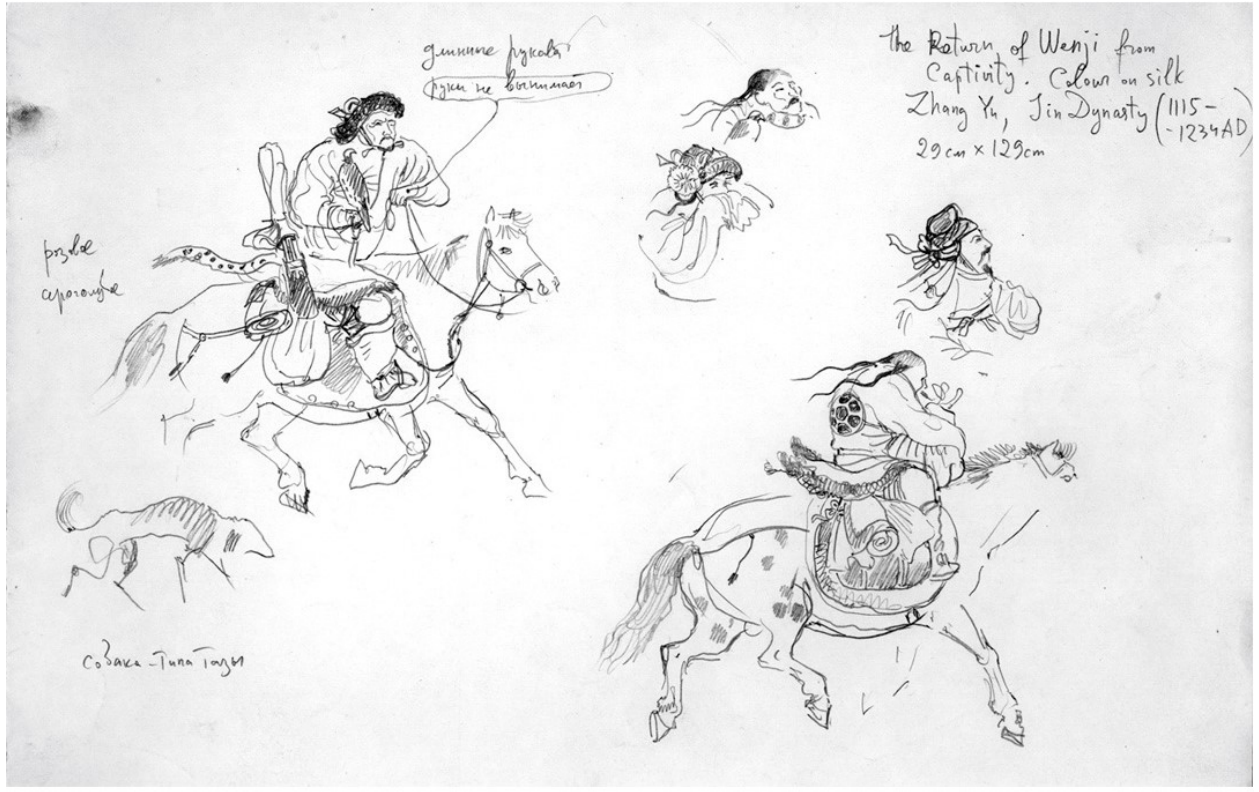 длинные рукава
руки не вынимает
The Return of Wenji from
Captivity. Colour on silk
Zhang Yu, Jin Dynasty (1115-
-1234AD)
29cm × 129cm
розовое
собака - типа тазы